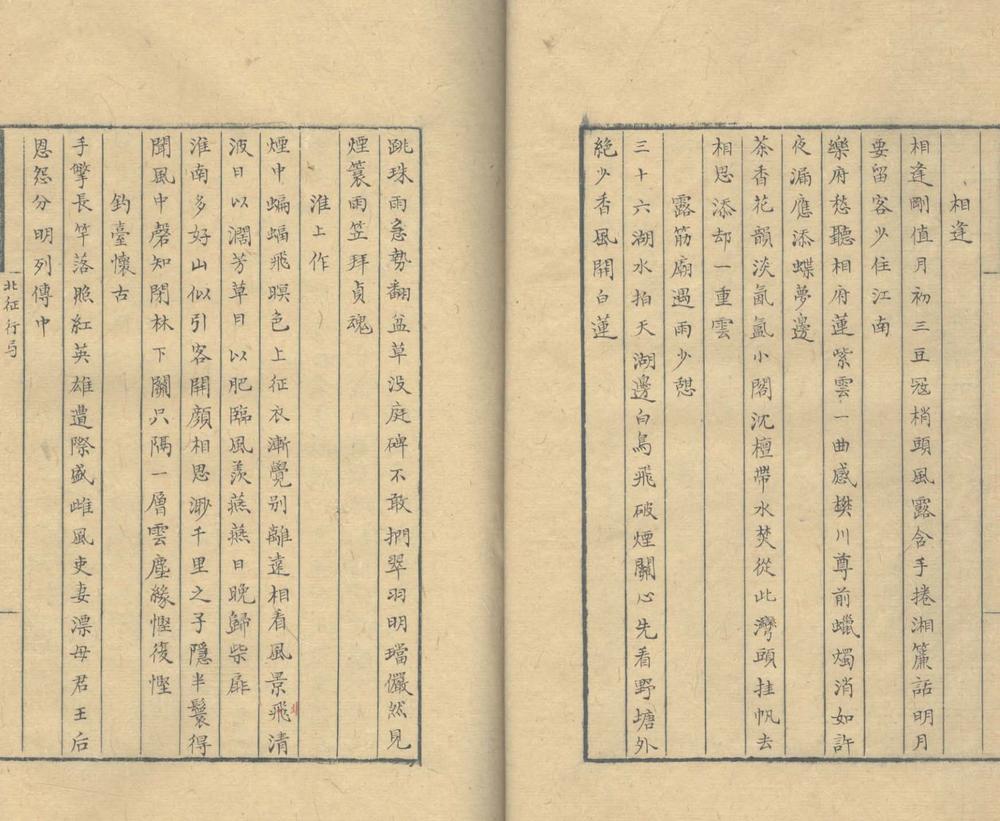 相逢
相逢剛值月初三豆冦梢頭風露含手捲湘簾話明月
要留客少住江南
樂府愁聽相府蓮紫雲一曲感樊川尊前蠟燭消如許
夜漏應添蝶夢邊
茶香花韻淡氤氳小閣沉檀帶水焚從此灣頭挂帆去
相思添却一重雲
露筋廟遇雨少憩
三十六湖水拍天湖邊白鳥飛破煙關心先看野塘外
絶少香風開白蓮
跳珠雨急勢翻盆草沒庭碑不敢捫翠羽明璫儼然見
煙簑雨笠拜貞魂
淮上作
煙中蝙蝠飛暝色上征衣漸覺別離遠相看風景飛清
波日以濶芳草日以肥臨風羨燕燕日晚歸柴扉
淮南多好山似引客開顏相思渺千里之子隱半鬟得
聞風中磬知閉林下關只隔一層雲塵緣慳復慳
釣臺懷古
手擎長竿落照紅英雄遭際盛雌風吏妻漂母君王后
恩怨分明列傳中
北征行